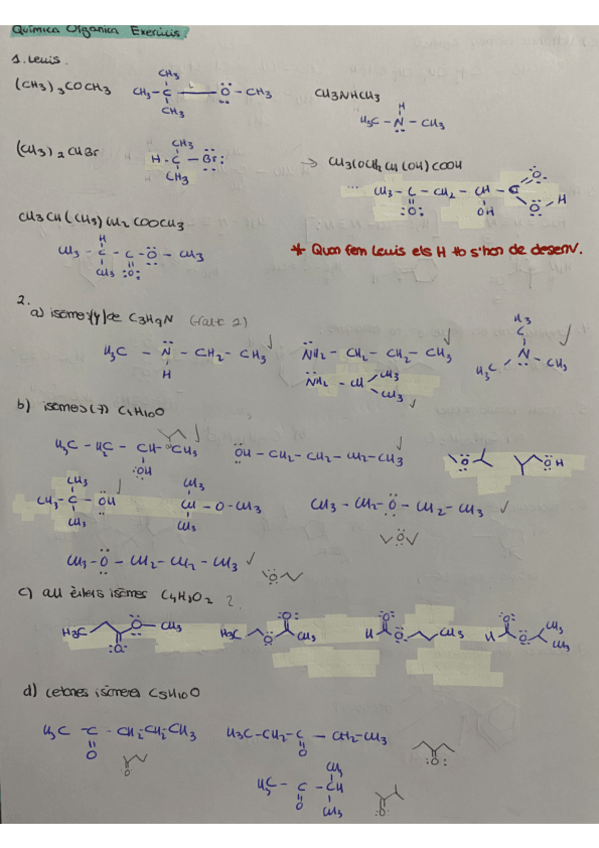 Química Orgànica Exercicis.
1. Lewis.
(CH3)3COCH3
CH3
CH3 - C - O - CH3
CH3
CH3NHCH3
H
H3C - N - CH3
(CH3)2CHBr
CH3
H - C - Br:
CH3
→ CH3COCH2CH(OH)COOH
CH3 - C - CH2 - CH - C
O
OH
O
O - H
CH3CH(CH3)CH2COOCH3
H
CH3 - C - C - O - CH3
CH3 :O:
* Quan fem Lewis els H no s'han de desenv.
2.
a) isomers (4) de C3H9N
H3C - N - CH2 - CH3
H
NH2 - CH2 - CH2 - CH3
NH2 - CH
CH3
CH3
H3
C
N
H3C
CH3
b) isomers (7) C4H10O
H3C - H2C - CH - CH3
:OH
OH - CH2 - CH2 - CH2 - CH3
O
OH
CH3
CH3 - C - OH
CH3
CH3
CH - O - CH3
CH3
CH3 - CH2 - O - CH2 - CH3
O
CH3 - O - CH2 - CH2 - CH3
O
c) all èsters isòmers C4H8O2
H3C
O - CH3
:O:
H3C
O
O
CH3
H
O
O
CH3
H
O
O
CH3
CH3
d) cetones isòmeres C5H10O
H3C - C - CH2 - CH2 - CH3
O
O
H3C - CH2 - C - CH2 - CH3
O
:O:
CH3
H3C - C - CH
O
CH3
O